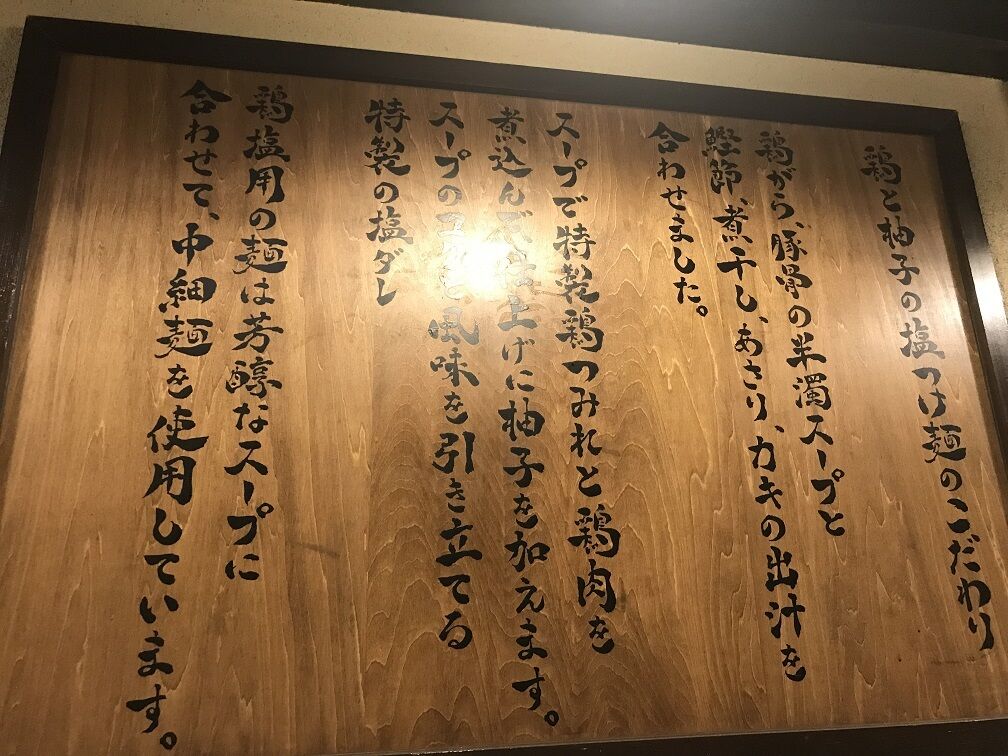 鶏と柚子の塩つけ麺のこだわり
鶏がら、豚骨の半濁スープと
鰹節、煮干し、あさり、カキの出汁を
合わせました。
スープで特製鶏つみれと鶏肉を
煮込んで仕上げに柚子を加えます。
スープのコクと風味を引き立てる
特製の塩ダレ
鶏塩用の麺は芳醇なスープに
合わせて、中細麺を使用しています。